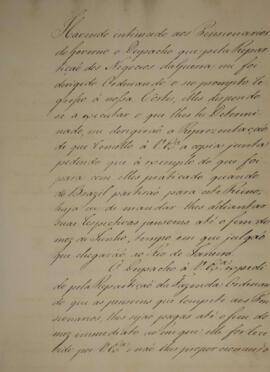 Havendo intimado aos Pensionarios
do Governo o Despacho que pela Repar
tição dos Negocios da Guerra me foi
dirigido Ordenando o seo prompto re
gresso á nossa Côrte, elles dispondo
se a executar o que lhes he determi
nado, me dirigirão a Reprezentação
de que remetto á V. Exa. a copia junta
pedindo que á exemplo do que foi
para com elles praticado quando
do Brazil partirão para este Reino,
haja de mandar lhes adiantar
suas respectivas pensoens até o fim do
mez de Junho, tempo em que julgão
que chegarão ao Rio de Janeiro.
O Despacho á V. Exa. expedi
do pela Repartição da Fazenda Ordenan
do que as pensoens que compete aos Pen
sionarios, lhes sejão pagas até o fim do
mez immediato ao em que elle for rece
bido por V. Exa. não lhes proporcionando